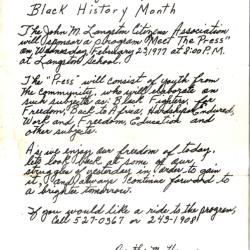 Black History Month
The John M. Langston Citizens Association
will sponsor a program "Meet The Press"
on Wednesday, February 23, 1977 at 8:00 P.M.
at Langston School.
The "Press" will consist of youth from
the community, who will elaborate on
such subjects as: Black Fighters, for
Freedom, Back to Africa, Hardships endured,
Work and Freedom, Education and
other subjects.
As we enjoy our freedom of today,
lets look back at some of our
struggles of yesterday in order to gain
it, and always continue forward to
a brighter tomorrow.
If you would like a ride to the program,
Call 527-0367 or 243-1908